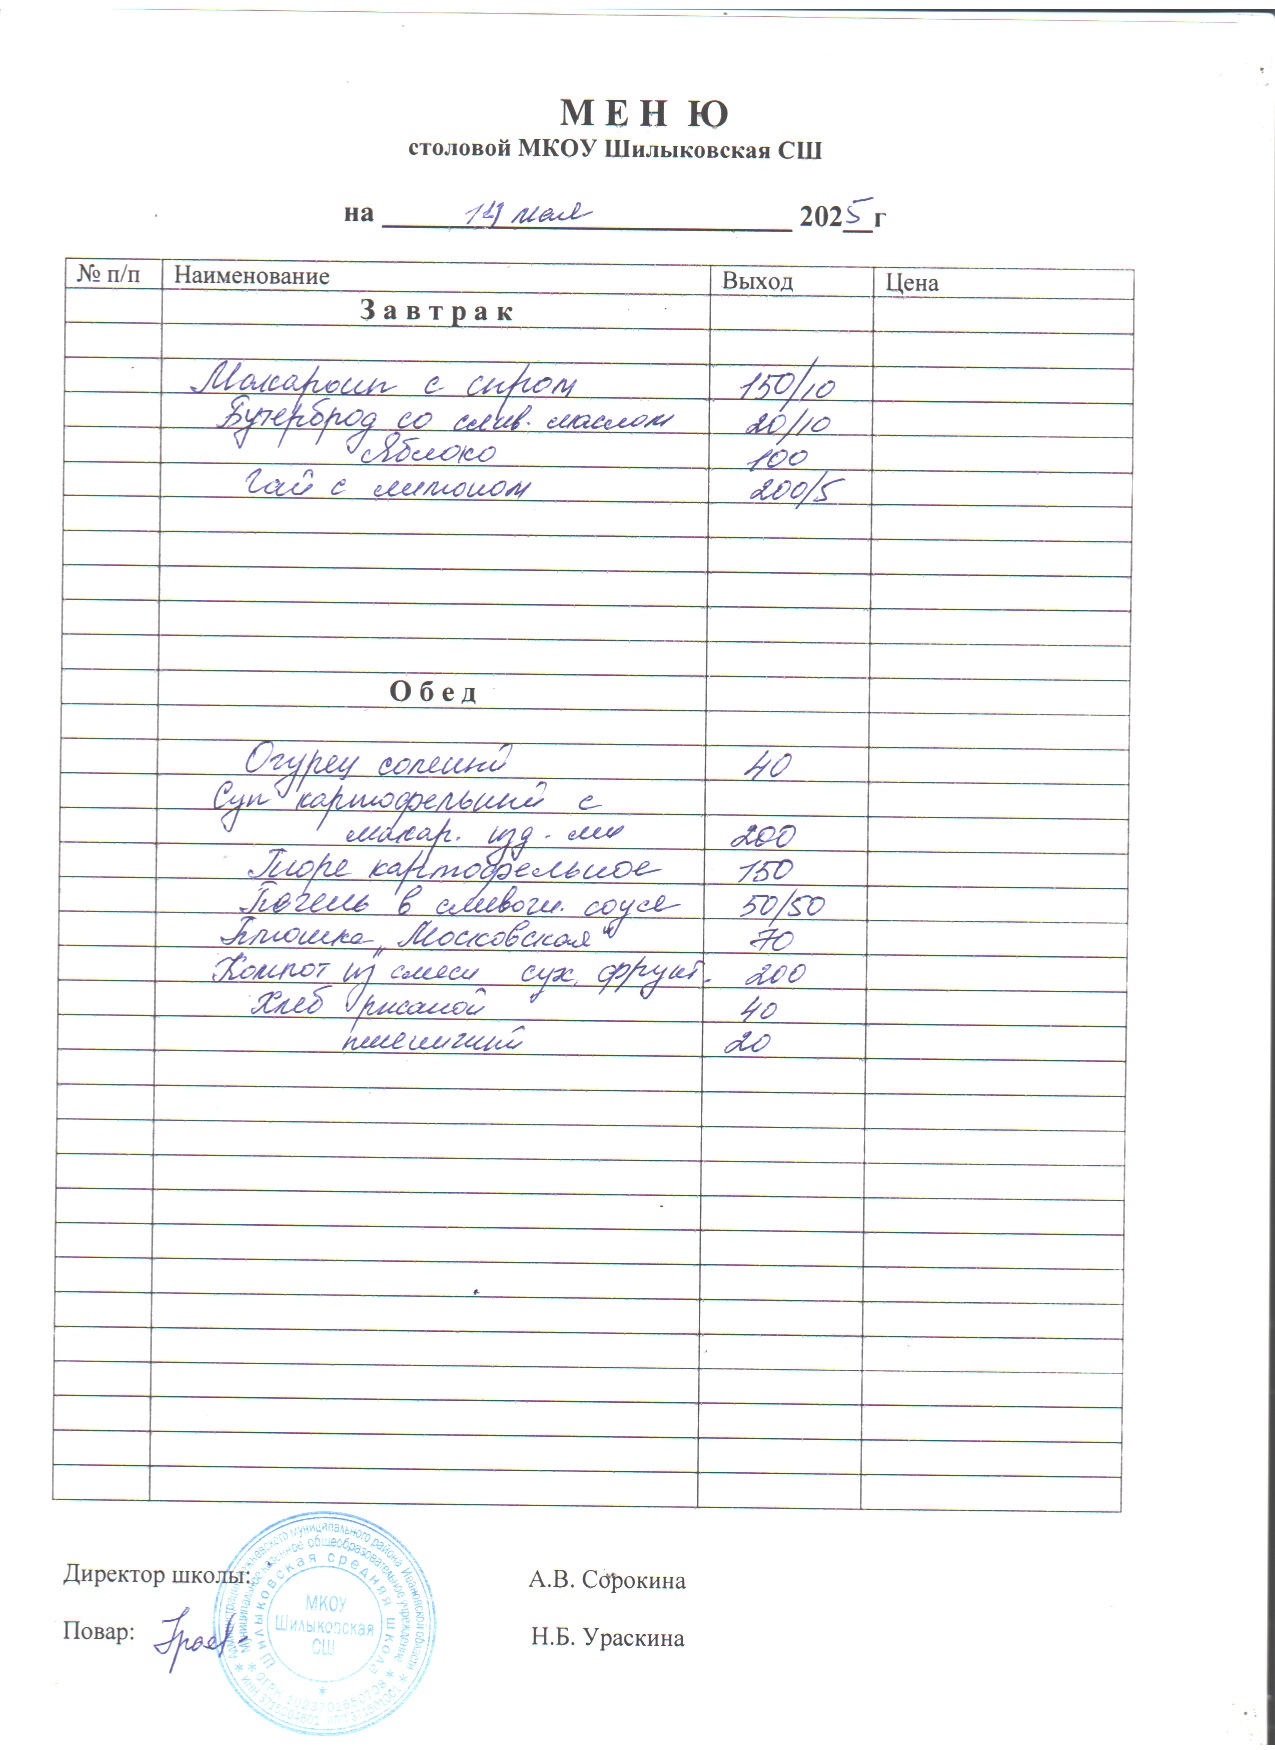 М Е Н Ю
столовой МКОУ Шилыковская СШ
на 14 мая 2025 г
№ п/п Наименование Выход Цена
З а в т р а к
Макароны с сыром 150/10
Бутерброд со слив. маслом 20/10
Яблоко 100
Чай с лимоном 200/5
О б е д
Огурец соленый 40
Суп картофельный с
макар. изд-ми 200
Пюре картофельное 150
Печень в сливочн. соусе 50/50
Плюшка „Московская" 70
Компот из смеси сух. фрукт. 200
Хлеб ржаной 40
пшеничный 20
Директор школы: А.В. Сорокина
Повар: Н.Б. Ураскина
МКОУ
Шилыковская
СШ
Шилыковская средняя школа